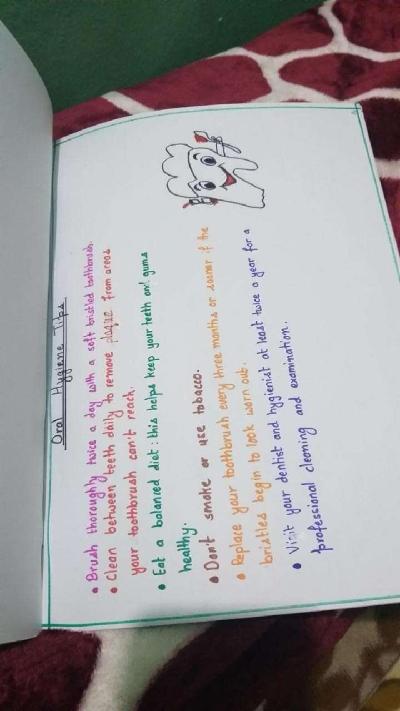 Oral Hygiene Tips
• Brush thoroughly twice a day with a soft bristled toothbrush.
• Clean between teeth daily to remove plaque from areas
your toothbrush can't reach.
• Eat a balanced diet: this helps keep your teeth and gums
healthy.
• Don't smoke or use tobacco.
• Replace your toothbrush every three months or sooner if the
bristles begin to look worn out.
• Visit your dentist and hygienist at least twice a year for a
professional cleaning and examination.